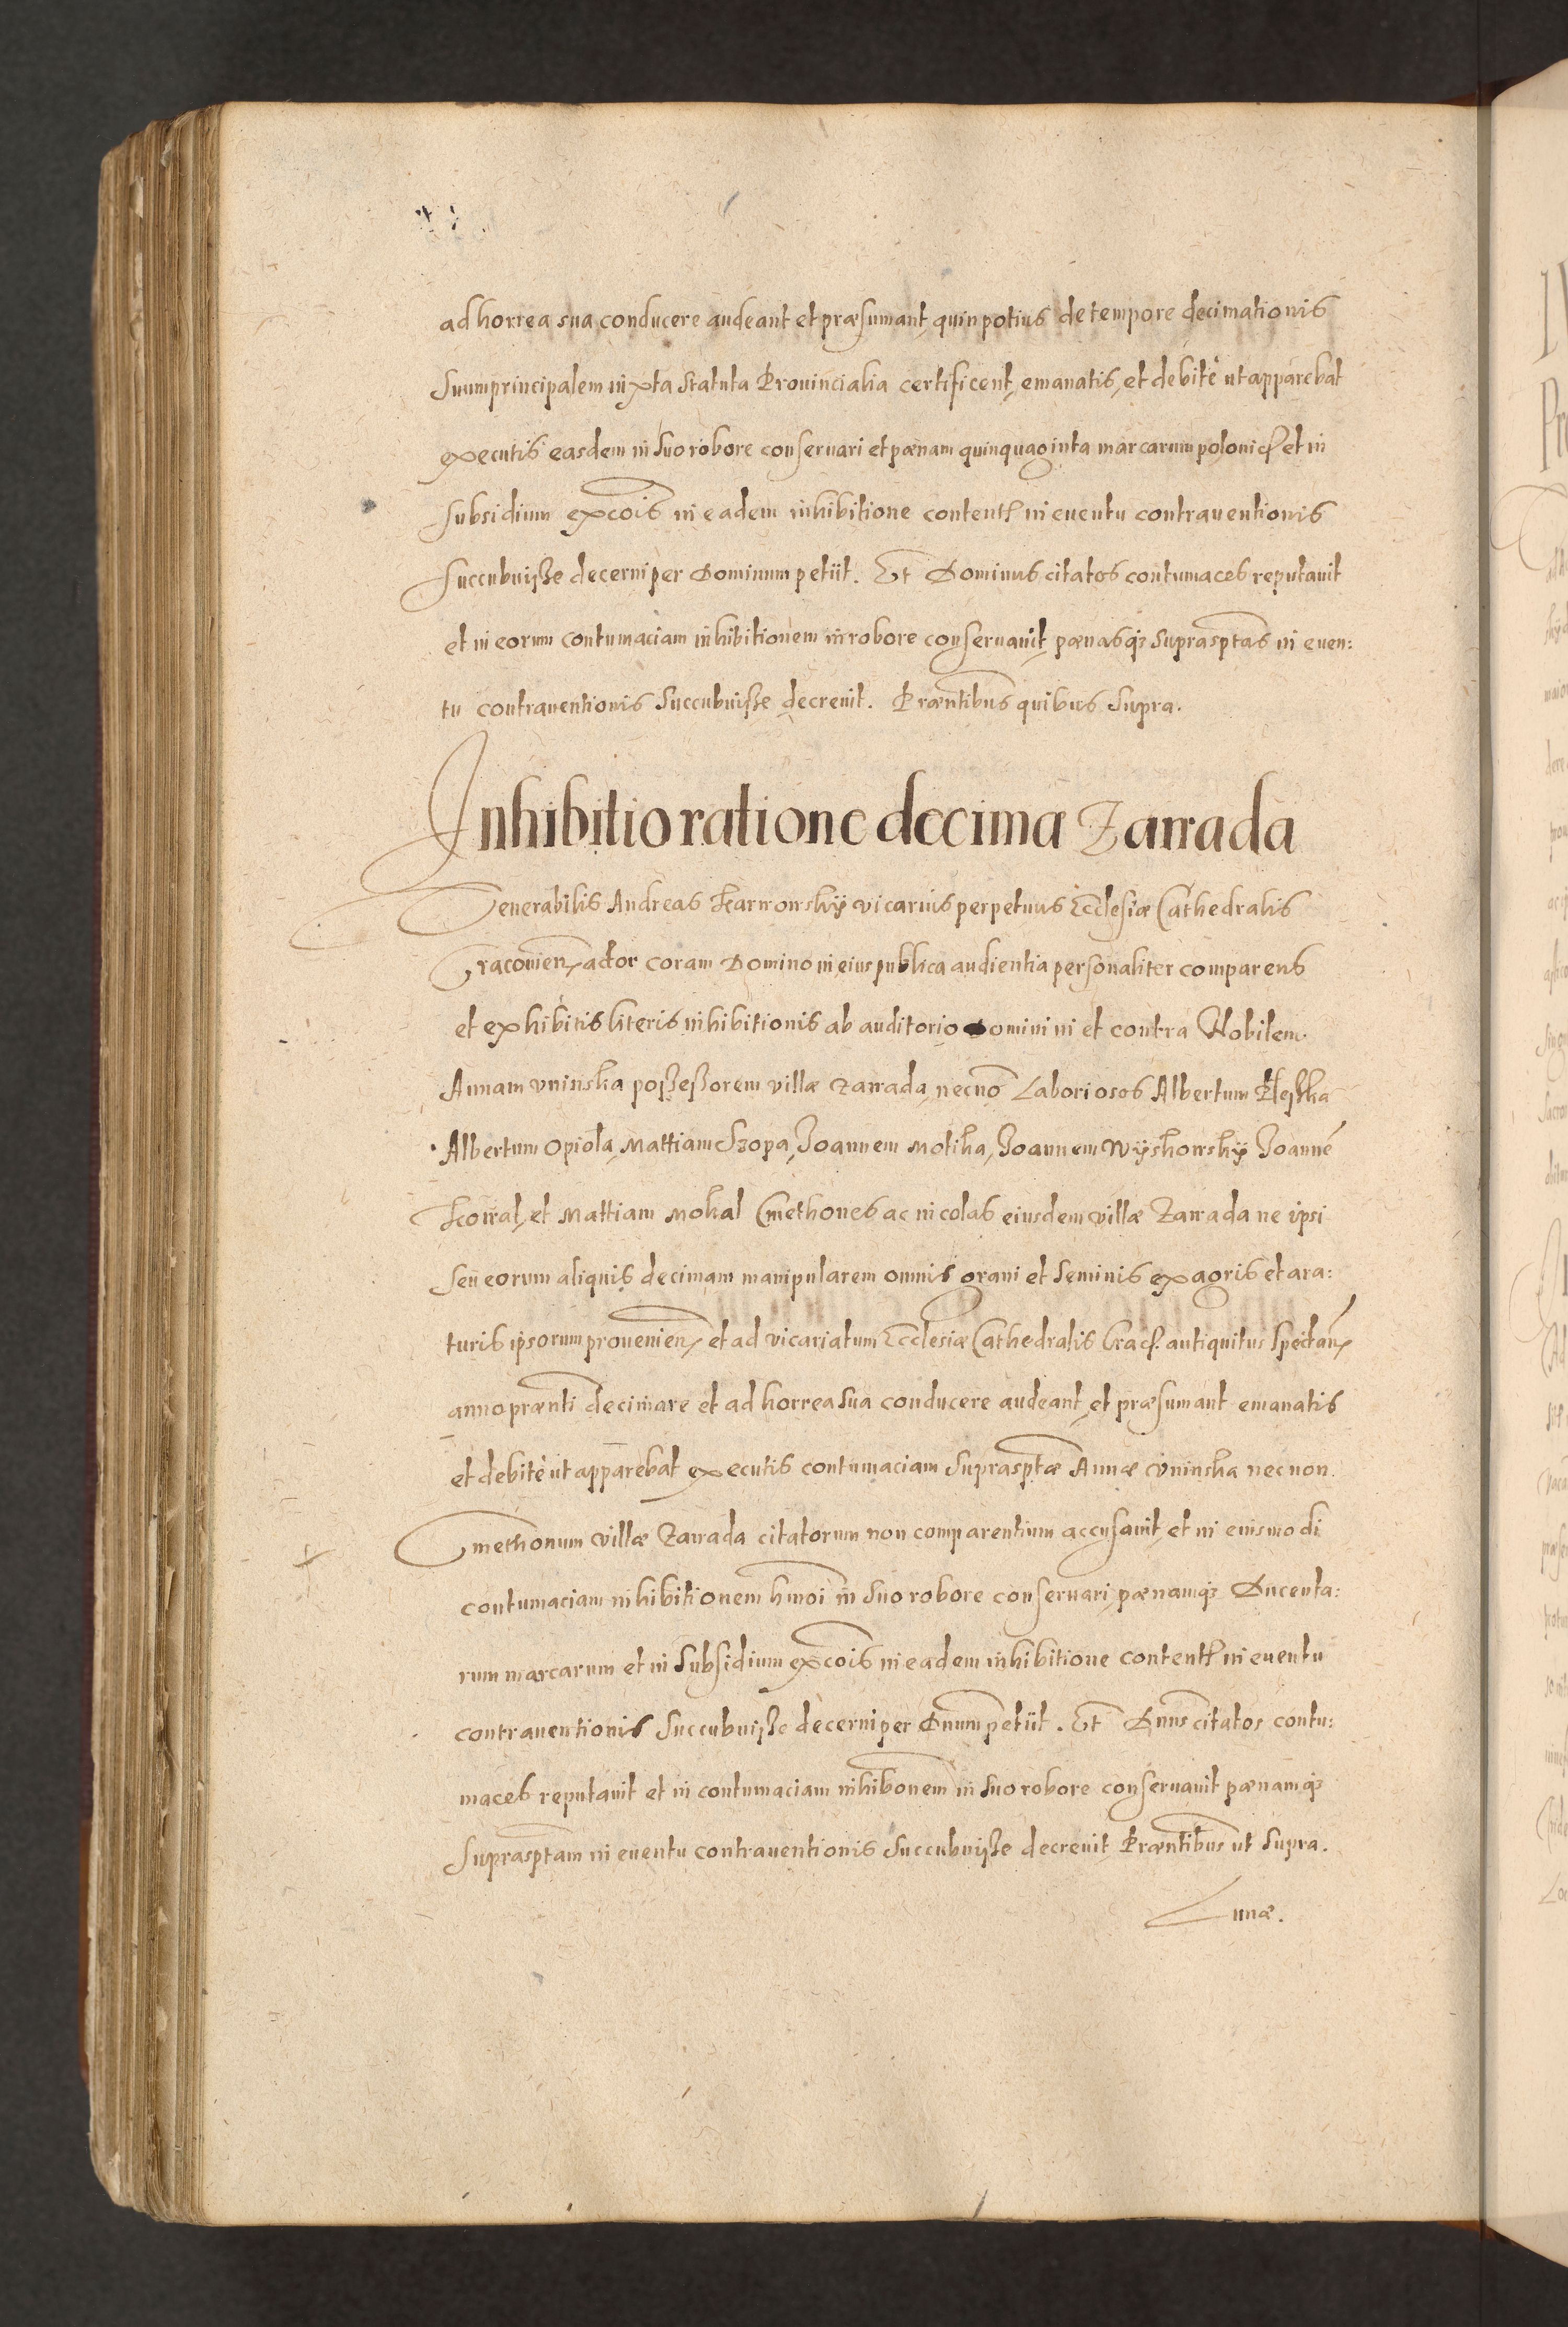 ad horrea sua conducere audeant et præsumant, quin potius de tempore decimationis
suum principalem iuxta statuta Prouincialia certificent, emanatis, et debitè ut apparebat
executis easdem in suo robore conseruari et pænam quinquaginta marcarum polonical et in
subsidium excois in eadem inhibitione content in euentu contrauentionis
succubuisse decerni per Dominum petiit. Et Dominus citatos contumaces reputauit
et in eorum contumaciam inhibitionem in robore conseruauit, pænasq3 suprasptas in euen:
tu contrauentionis succubuisse decreuit. Præntibus quibus supra.
Inhibitio ratione decimæ Zawada
Venerabilis Andreas Karwowskÿ vicarius perpetuus Ecclesiæ Cathedralis
Cracouien actor coram Domino in eius publica audientia personaliter comparens
et exhibitis literis inhibitionis ab auditorio Domini in et contra Nobilem
Annam Uninska possessorem villæ Zawada, necnō Laboriosos Albertum
Albertum Opiola, Mattiam Szopa, Joannem Motika, Joannem Wÿskowskÿ Joannē
Kowal, et Mattiam Mokal Cmethones ac incolas eiusdem villæ Zawada ne ipsi
seu eorum aliquis decimam manipularem omnis grani et seminis ex agris et ara:
turis ipsorum prouenien et ad vicariatum Ecclesiæ Cathedralis Crac. antiquitus spectan
anno prænti decimare et ad horrea sua conducere audeant, et præsumant emanatis
et debitè ut apparebat executis contumaciam suprasptæ Annæ Uninska necnon
Cmethonum villæ Zawada citatorum non comparentium accusauit, et in eiusmodi
contumaciam inhibitionem hmoi in suo robore conseruari, pænamq3 Ducenta:
rum marcarum et in subsidium excois in eadem inhibitione content in euentu
contrauentionis succubuisse decerni per Dnum petiit. Et Dnus citatos contu:
maces reputauit et in contumaciam inhibonem in suo robore conseruauit pænamq3
suprasptam in euentu contrauentionis succubuisse decreuit, Præntibus ut supra.
Lunæ.